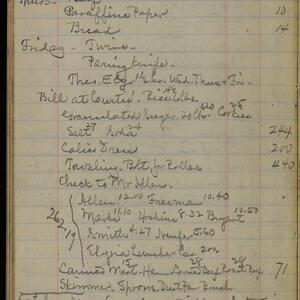 Paraffine Paper 10
Bread 14
Friday - Twine
Paring Knife
Wed. Thurs + Fri-
Bill at Curtis'. Rice
Granulated Sugar 20 lbs. 120 Cookies 25
Salt 27 Soda 24 244
Calico Dress 200
Toweling - Bolt, for Rollers 440
Check to Mr Allen
Allen 12.00 Freeman 10.40
Marks 11.10 Hoskins 8.32 Bryant 10.50
Smith 4.27 5.60
Elyria Lumber Co. 200
Canned Meat - Ham Corned Beef Roast Beef 28 71
Skimmer. Spoons. Dust Pan Brush.